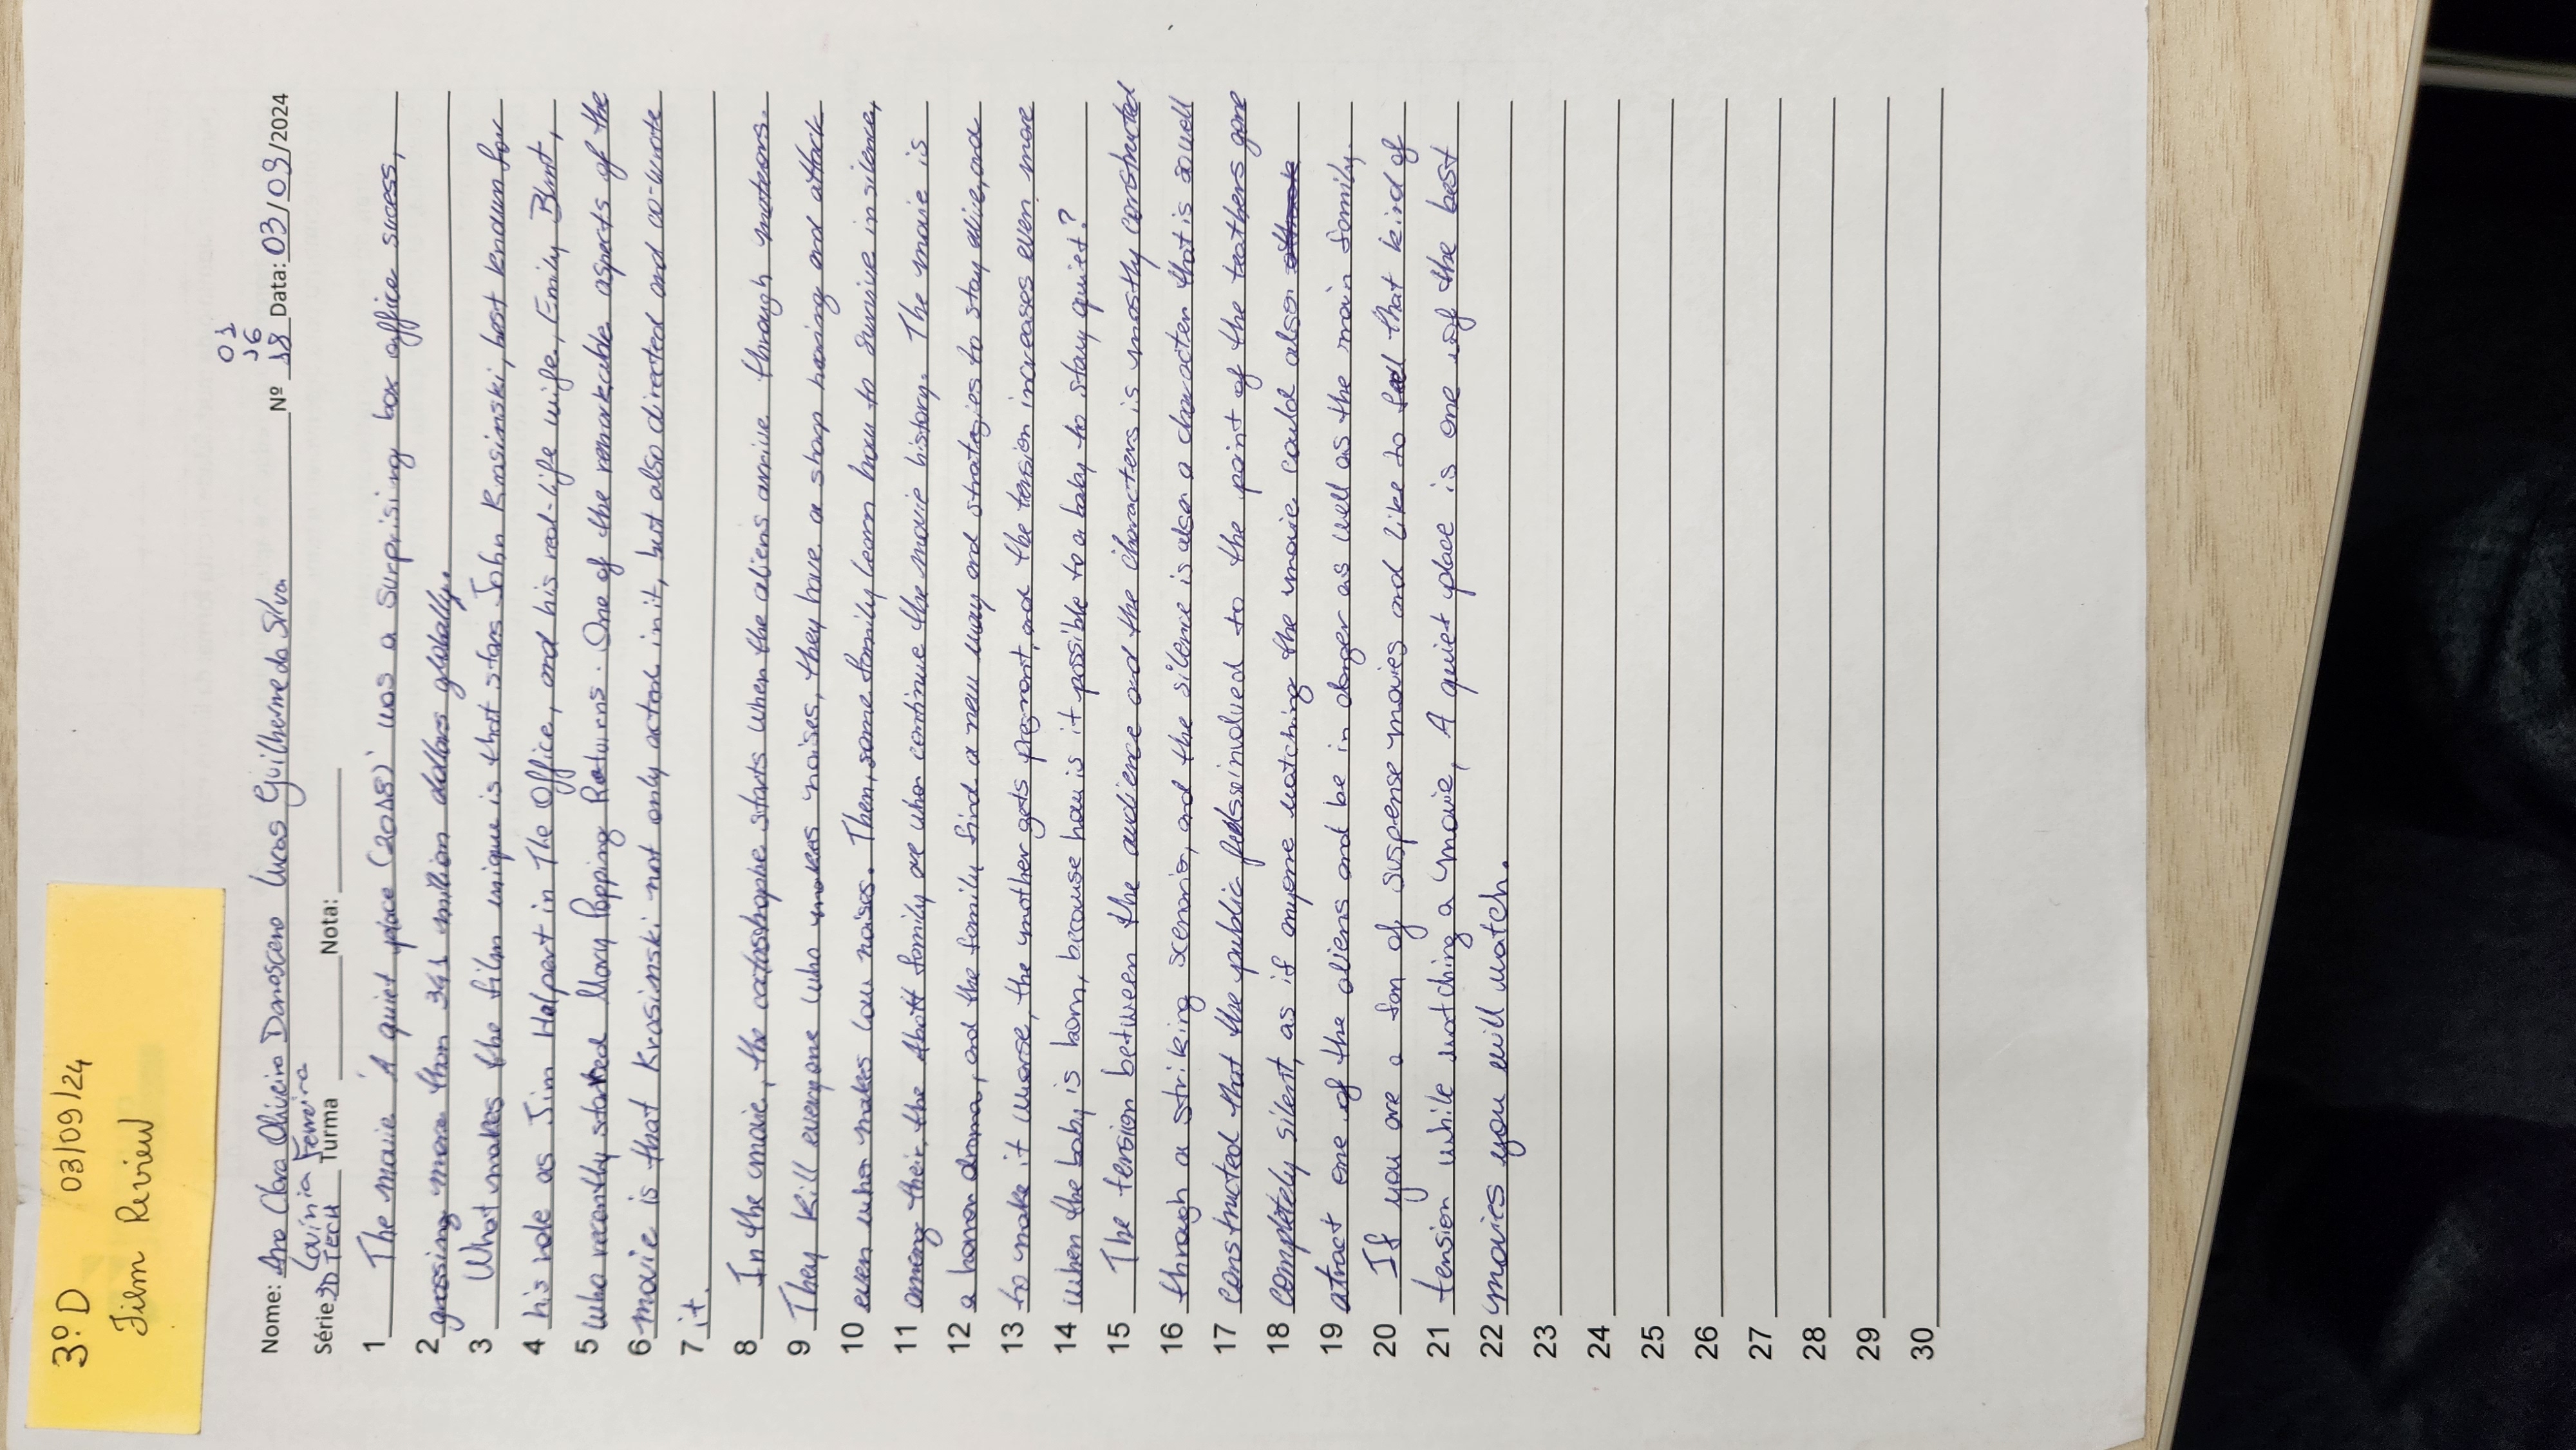 3º D 03/09/24
Film Review
01
16
Nome: Ana Clara Oliveira Damasceno Lucas Guilherme da Silva Nº 18 Data: 03/09/2024
Lavínia Ferreira
Série 3D TECH Turma Nota:
1 The movie 'A quiet place (2018)' was a surprising box office sucess,
2 grossing more than 341 million dollars globally.
3 What makes the film unique is that stars John Krasinski, best known for
4 his role as Jim Halpert in The Office, and his real-life wife, Emily Blunt,
5 who recently starred Mary Popping Returns. One of the remarkable aspects of the
6 movie is that Krasinski not only acted in it, but also directed and co-wrote
7 it.
8 In the movie, the catastrophe starts when the aliens arrive through meteors.
9 They kill everyone who makes noises, they have a sharp hearing and attack
10 even who makes low noises. Then, some family learn how to survive in silence,
11 among their, the Abott family are who continue the movie history. The movie is
12 a horror drama, and the family find a new way and strategies to stay alive, and
13 to make it worse, the mother gets pregnant, and the tension increases even more
14 when the baby is born, because how is it possible to a baby to stay quiet?
15 The tension between the audience and the characters is mostly constructed
16 through a striking scenario, and the silence is also a character that is so well
17 constructed that the public feels so involved to the point of the teathers gone
18 completely silent, as if anyone watching the movie could also
19 atract one of the aliens and be in danger as well as the main family.
20 If you are a fan of suspense movies and like to feel that kind of
21 tension while watching a movie, A quiet place is one of the best
22 movies you will watch.
23
24
25
26
27
28
29
30